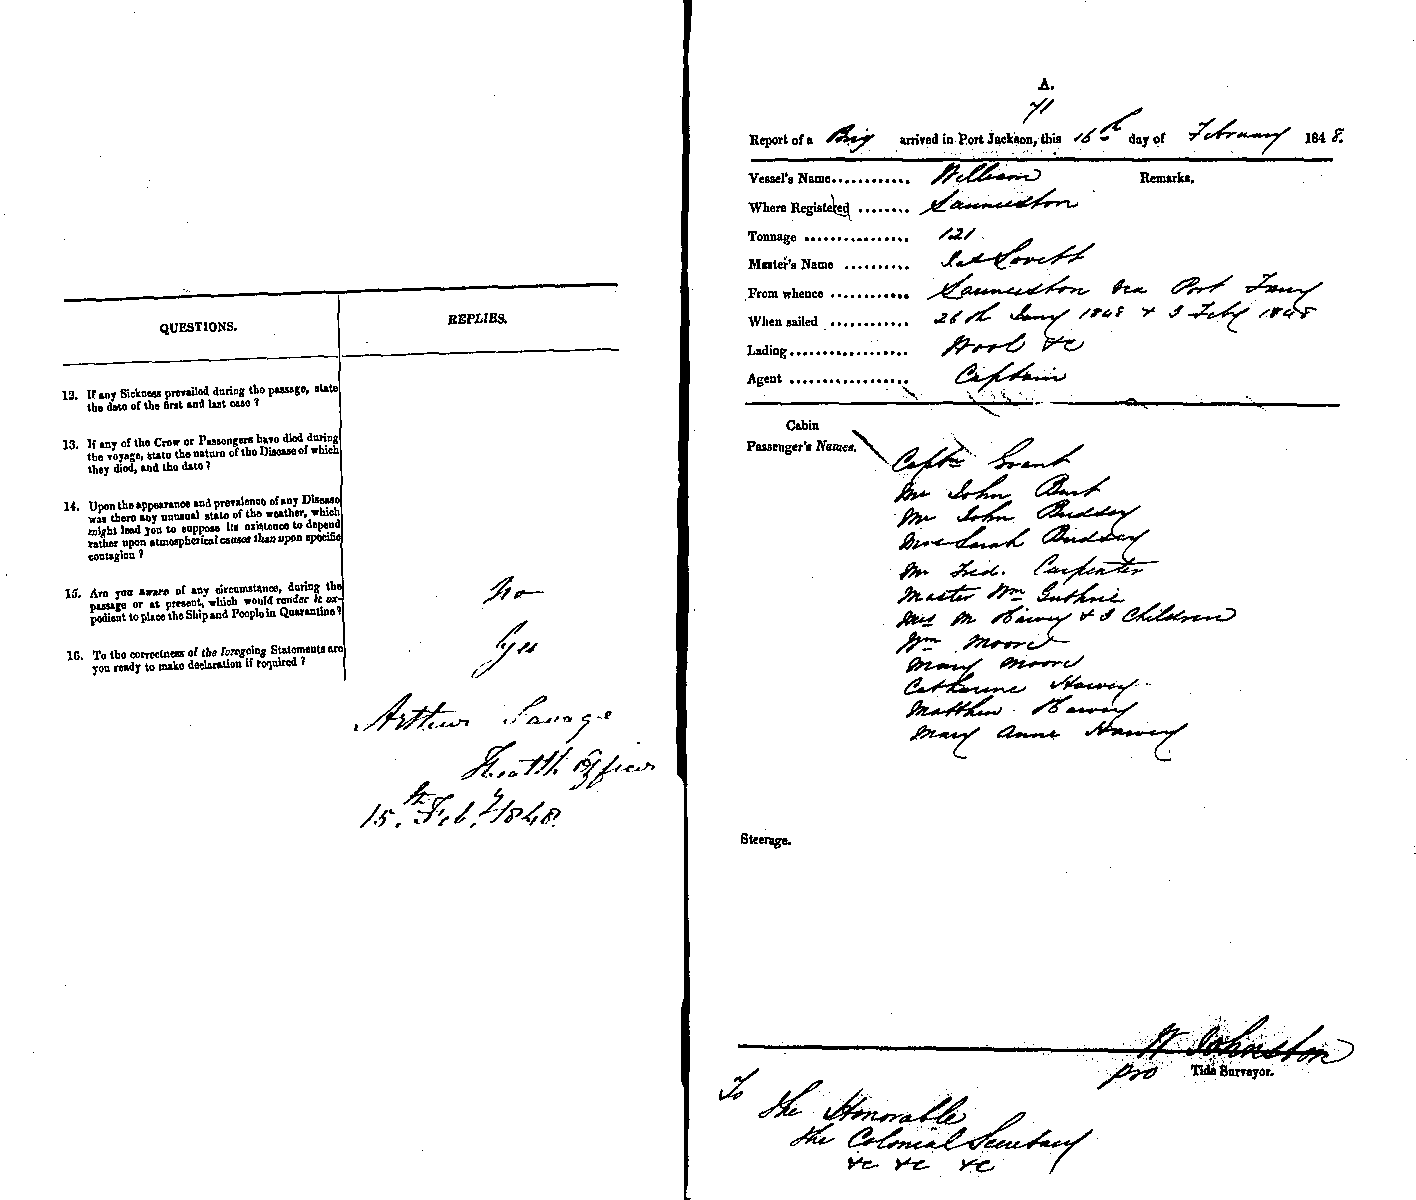 QUESTIONS.
REPLIES.
12. If any Sickness prevailed during the passage, state
the date of the first and last case ?
13. If any of the Crew or Passengers have died during
the voyage, state the nature of the Disease of which
they died, and the date ?
14. Upon the appearance and prevalence of any Disease
was there any unusual state of the weather, which
might lead you to suppose its existence to depend
rather upon atmospherical causes than upon specific
contagion ?
15. Are you aware of any circumstance, during the
passage or at present, which would render it ex-
pedient to place the Ship and People in Quarantine ?
No
16. To the correctness of the foregoing Statements are
you ready to make declaration if required ?
Yes
Arthur Savage
Health Officer
15th Feby 1848.
A.
71
Report of a Brig arrived in Port Jackson, this 16th day of February 1848.
Vessel's Name........... William
Remarks.
Where Registered ........ Launceston
Tonnage ................ 121
Master's Name .......... Jas Lovett
From whence ............ Launceston via Port Fairy
When sailed ............ 26th Jany 1848 & 3 Feby 1848
Lading.................. Wool &c
Agent .................. Captain
Cabin
Passenger's Names.
Captn Grant
Mr John Burt
Mr John
Mrs Sarah
Mr Fred. Carpenter
Master Wm Guthrie
Mrs M Harvey & 3 Children
Wm Moore
Mary Moore
Catherine Harvey
Matthew Harvey
Mary Anne Harvey
Steerage.
W Johnston
pro Tide Surveyor.
To
The Honorable
The Colonial Secretary
&c &c &c